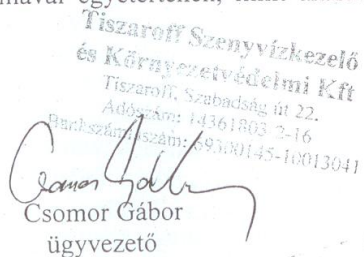 egyetértenek, mint
Tiszaroff Szennyvízkezelő
és Környezetvédelmi Kft
Tiszaroff, Szabadság út 22.
Adószám: 14361803-2-16
Bankszámlaszám: 69300145-10013041
Csomor Gábor
Csomor Gábor
ügyvezető